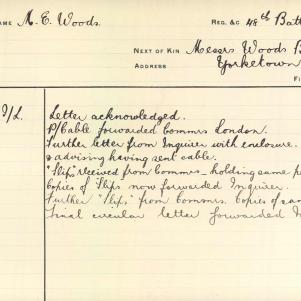 NAME M. E. Woods.
REG. &C 48th Batt
NEXT OF KIN Messrs Woods B
ADDRESS Yorketown
I/L. Letter acknowledged.
P/Cable forwarded Commrs London.
Further letter from Inquirer with enclosure.
& advising having sent cable.
"Slip" received from Commrs – holding same
Copies of Slips now forwarded Inquirer.
Further "Slips" from Commrs. Copies of
Final circular letter forwarded